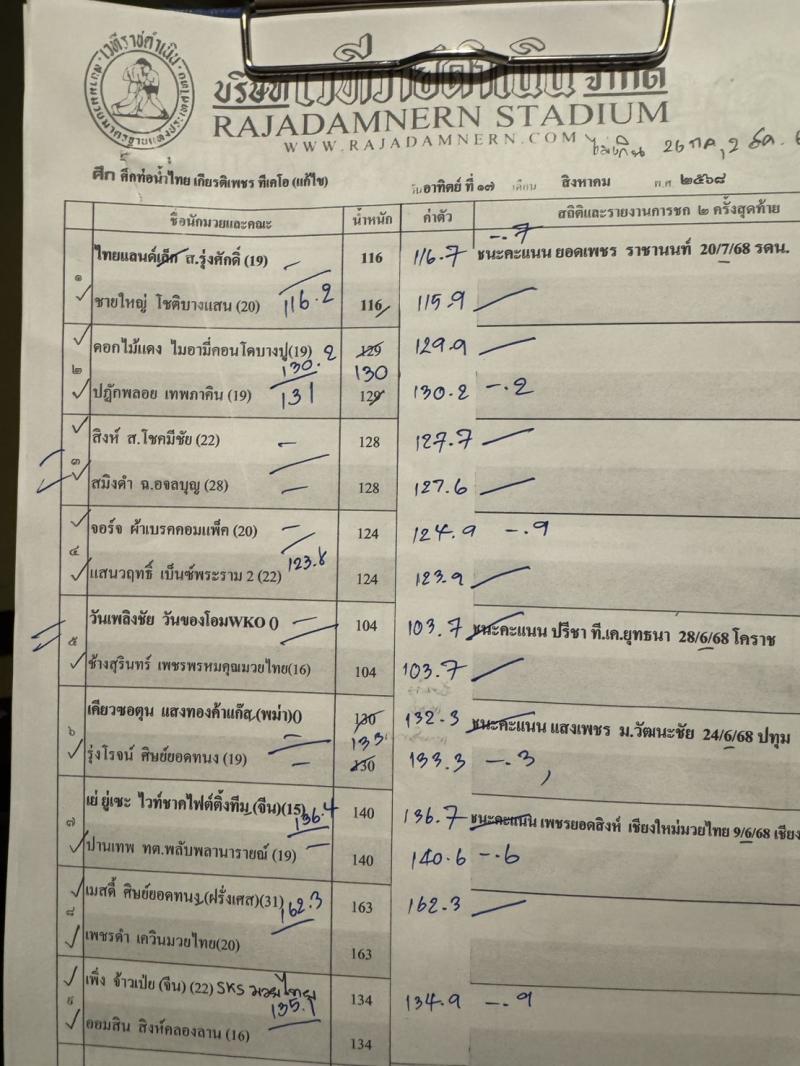 เวทีราชดำเนิน
บริษัท เวทีราชดำเนิน จำกัด
RAJADAMNERN STADIUM
WWW.RAJADAMNERN.COM
ไม่เกิน 26 กค, 2 ธค.
ศึก ศึกท่อน้ำไทย เกียรติเพชร ทีเคโอ (แก้ไข) วันอาทิตย์ ที่ ๑๗ เดือน สิงหาคม พ.ศ ๒๕๖๘
ชื่อนักมวยและคณะ น้ำหนัก ค่าตัว สถิติและรายงานการชก ๒ ครั้งสุดท้าย
-.7
ไทยแลนด์เล็ก ส.รุ่งศักดิ์ (19) 116 116.7 ชนะคะแนน ยอดเพชร ราชานนท์ 20/7/68 รดน.
๑
ชายใหญ่ โชติบางแสน (20) 116.2 116 115.9
ดอกไม้แดง ไมอามี่คอนโดบางปู(19) 129 129.9
๒ 130.2 130
ปฏักพลอย เทพภาคิน (19) 131 129 130.2 -.2
สิงห์ ส.โชคมีชัย (22) 128 127.7
๓
สมิงดำ ฉ.อจลบุญ (28) 128 127.6
จอร์จ ผ้าเบรคคอมแพ็ค (20) 124 124.9 -.9
๔
แสนวฤทธิ์ เบ็นซ์พระราม 2 (22) 123.8 124 123.9
วันเพลิงชัย วันของโอมWKO () 104 103.7 ชนะคะแนน ปรีชา ที.เค.ยุทธนา 28/6/68 โคราช
๕
ช้างสุรินทร์ เพชรพรหมคุณมวยไทย(16) 104 103.7
เคียวซอตุน แสงทองค้าแก๊ส (พม่า)() 130 132.3 ชนะคะแนน แสงเพชร ม.วัฒนะชัย 24/6/68 ปทุม
๖ 133
รุ่งโรจน์ ศิษย์ยอดทนง (19) 130 133.3 -.3
เย่ ยู่เซะ ไวท์ชาคไฟต์ติ้งทีม (จีน)(15) 136.4 140 136.7 ชนะคะแนน เพชรยอดสิงห์ เชียงใหม่มวยไทย 9/6/68 เชียง
๗
ปานเทพ ทต.พลับพลานารายณ์ (19) 140 140.6 -.6
เมสดี้ ศิษย์ยอดทนง (ฝรั่งเศส)(31) 162.3 163 162.3
๘
เพชรดำ เควินมวยไทย(20) 163
เพิ่ง จ้าวเปีย (จีน) (22) SKS มวยไทย 134 134.9 -.9
๙ 135.1
ออมสิน สิงห์คลองลาน (16) 134